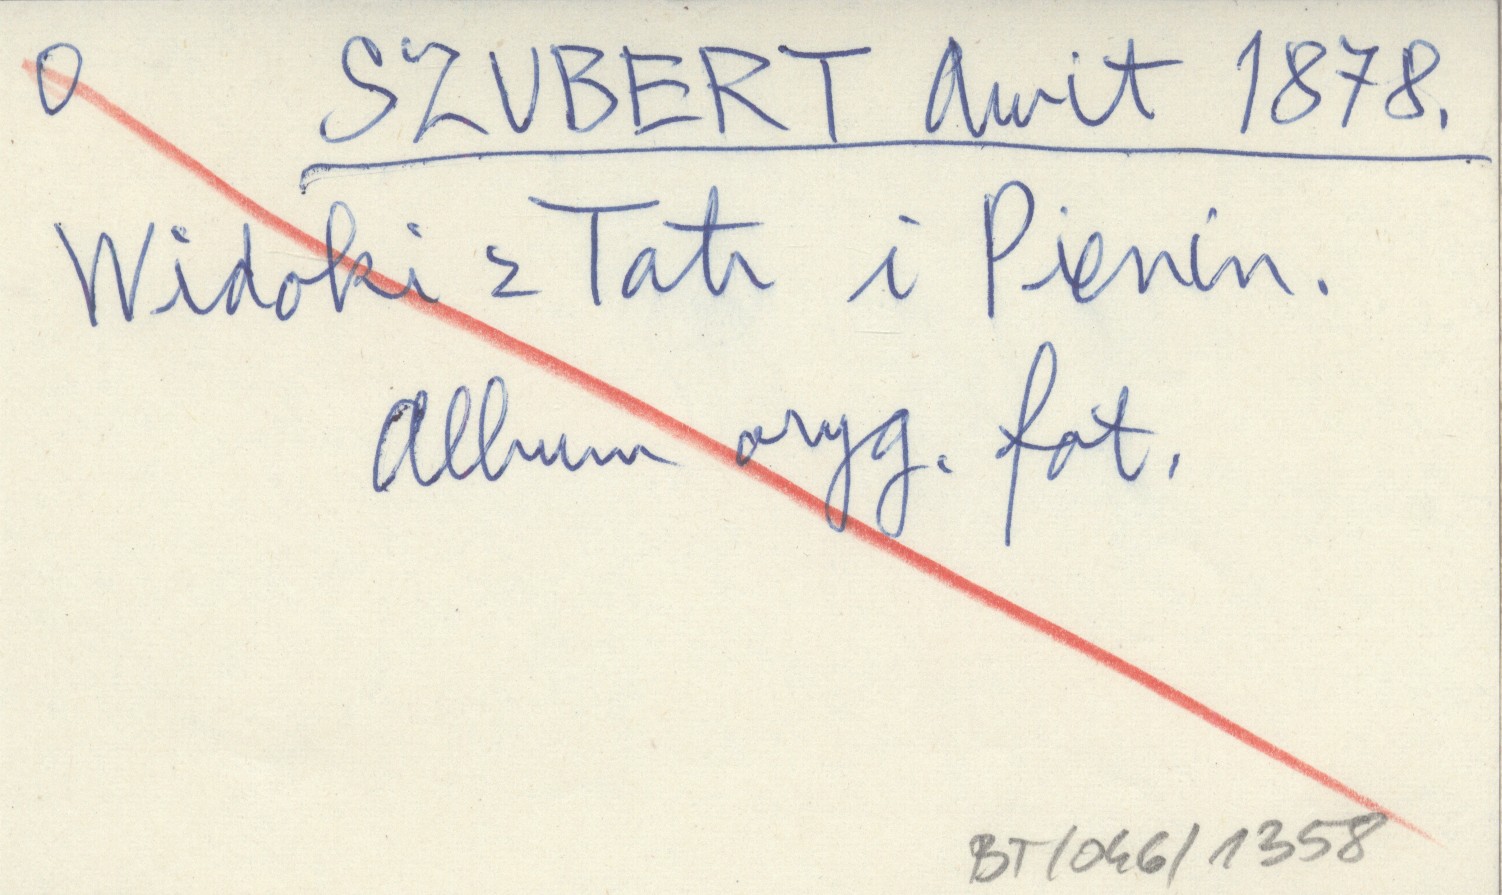 O SZUBERT Awit 1878.
Widoki z Tatr i Pienin.
Album oryg. fot.
BT/046/1358